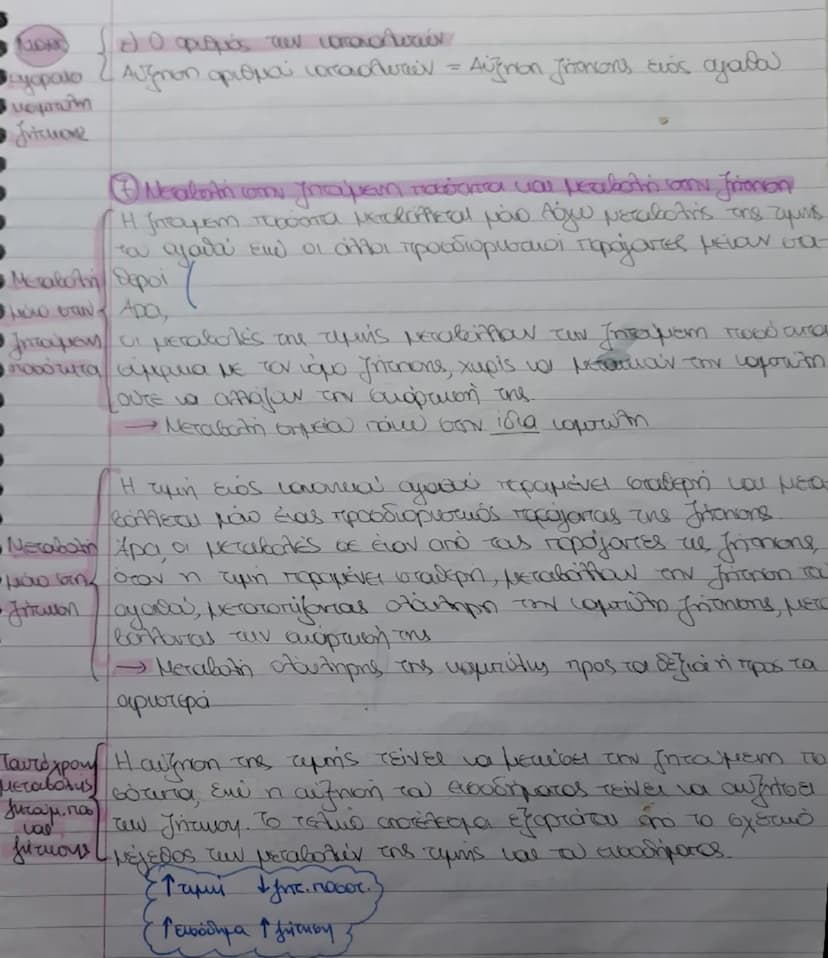 ε) Ο αριθμός των καταναλωτών
αγοραία
Αύξηση αριθμού καταναλωτών = Αύξηση ζήτησης ενός αγαθού
καμπύλη
ζήτησης
⑦ Μεταβολή στην ζητούμενη ποσότητα και μεταβολή στην ζήτηση
Η ζητούμενη ποσότητα μεταβάλλεται μόνο λόγω μεταβολής της τιμής
του αγαθού ενώ οι άλλοι προσδιοριστικοί παράγοντες μένουν στα-
Μεταβολή
θεροί
μόνο στην
Άρα,
ζητούμενη
οι μεταβολές της τιμής μεταβάλλουν την ζητούμενη ποσότητα
ποσότητα
σύμφωνα με τον νόμο ζήτησης, χωρίς να μετακινούν την καμπύλη
ούτε να αλλάζουν την συνάρτησή της
→ Μεταβολή σημείου πάνω στην ίδια καμπύλη
Η τιμή ενός κανονικού αγαθού παραμένει σταθερή και μετα-
βάλλεται μόνο ένας προσδιοριστικός παράγοντας της ζήτησης
Μεταβολή
Άρα, οι μεταβολές σε έναν από τους παράγοντες της ζήτησης,
μόνο στη
όταν η τιμή παραμένει σταθερή, μεταβάλλουν την ζήτηση του
ζήτηση
αγαθού, μετατοπίζοντας ολόκληρη την καμπύλη ζήτησης, μετα
βάλλοντας την συνάρτησή της
→ Μεταβολή ολόκληρης της καμπύλης προς τα δεξιά ή προς τα
αριστερά
Ταυτόχρονη
Η αύξηση της τιμής τείνει να μειώσει την ζητούμενη πο
μεταβολής
σότητα, ενώ η αύξηση του εισοδήματος τείνει να αυξήσει
ζητούμ. ποσ
την ζήτηση. Το τελικό αποτέλεσμα εξαρτάται από το σχετικό
και
ζήτησης
μέγεθος των μεταβολών της τιμής και του εισοδήματος.
↑ τιμή ↓ ζητ. ποσοτ.
↑ εισόδημα ↑ ζήτηση